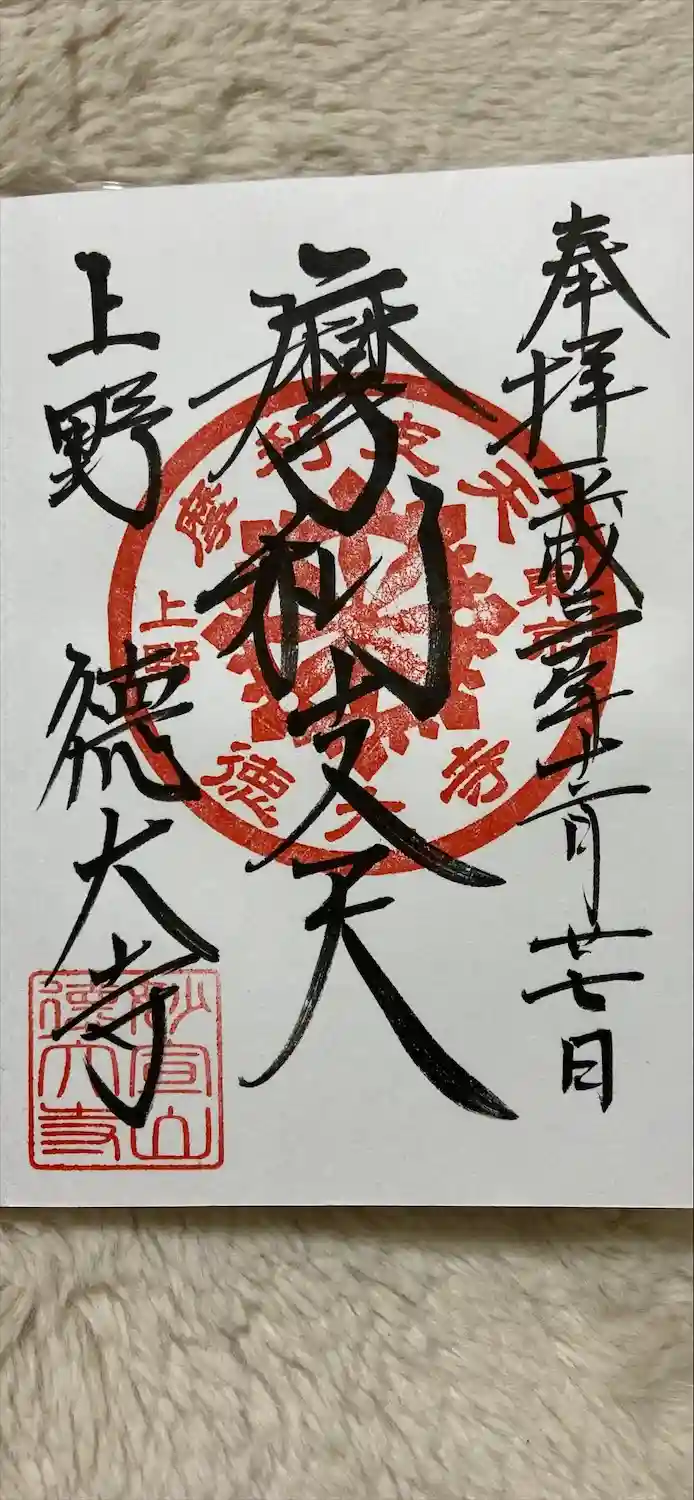 奉拝 三年十一月廿七日
摩利支天
上野 徳大寺
摩利支天
東京
上野
徳大寺
妙宣山
徳大寺